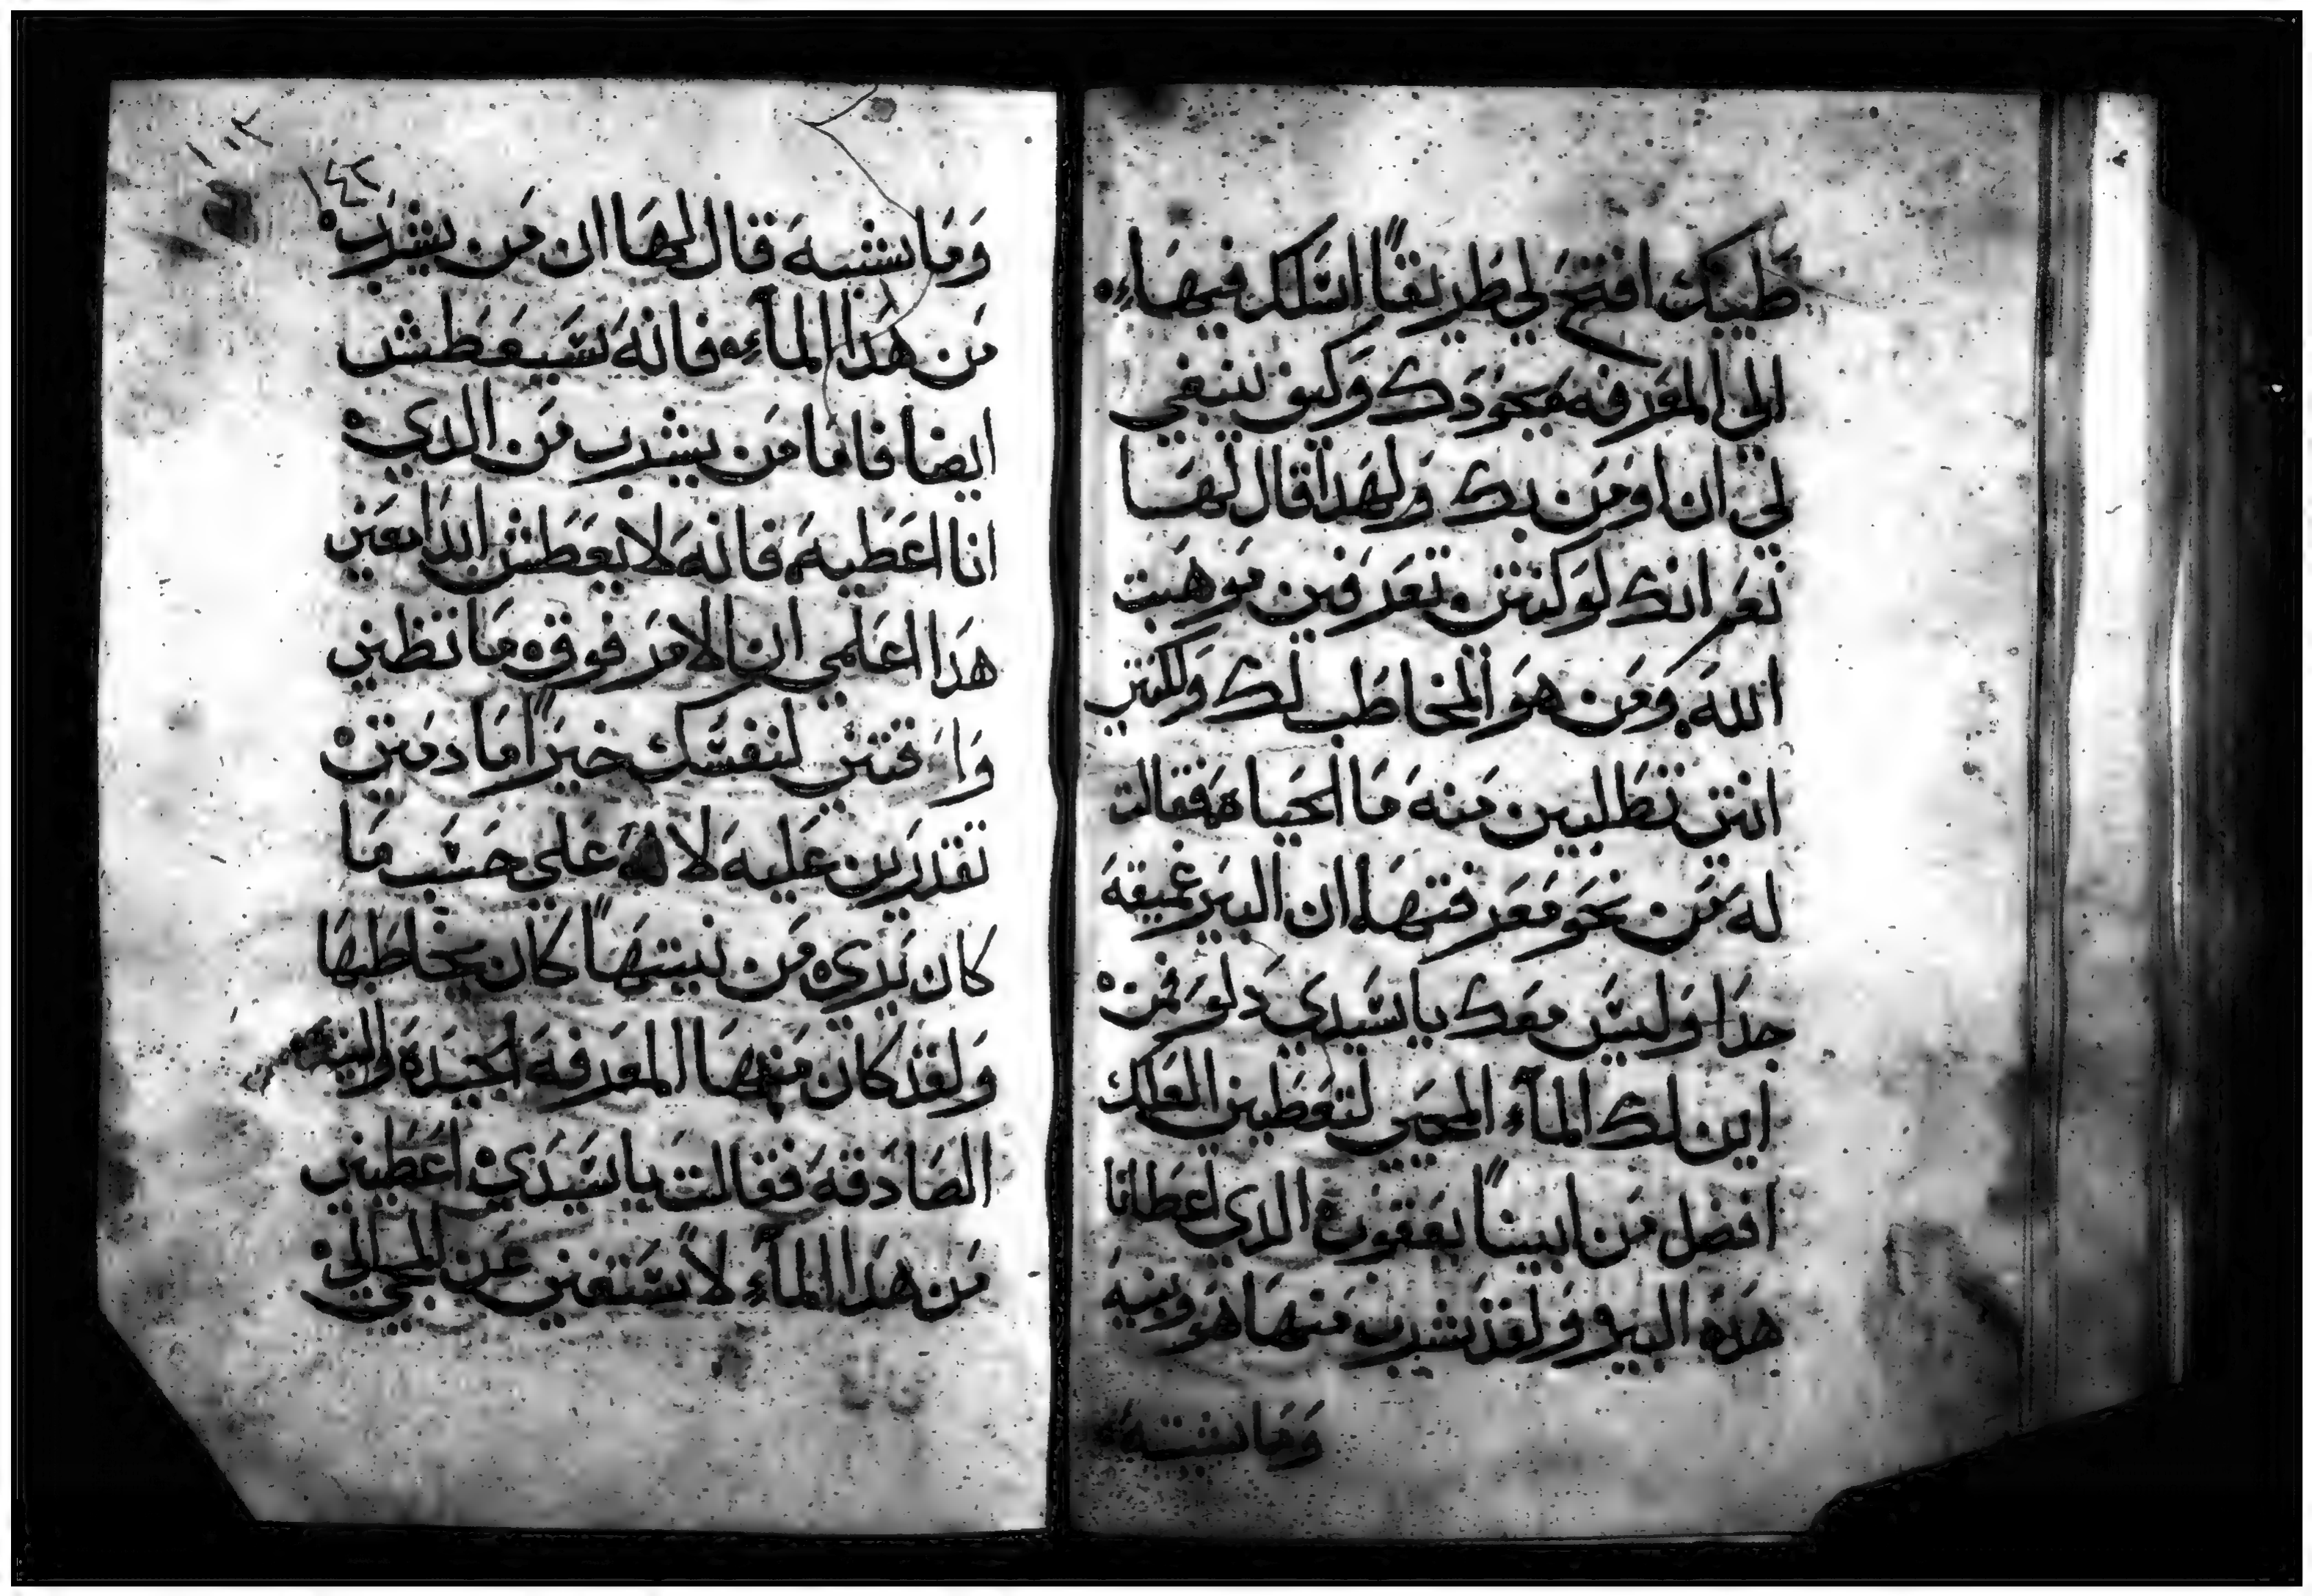 طيبك افتح لي طريقاً اسلك فيها
الي المعرفه بجودك وكيف ينبغي
لي ان اومن بك ولهدا قال لها
نعم انك لو كنتي تعرفين موهبت
الله ومن هو المخاطب لك ولكنتي
انتي تطلبين منه ما الحياه فقالت
له من نحو معرفتها ان البير غميقه
جدا وليس معك يا سيدي دلو فمن
اين لك المآء المحيي لتعطين العلك
افضل من ابينا يعقوب الدي اعطانا
هده البير ولقد شرب منها هو وبنيه
وما شيته
١٠٢
١٤٢
وما شيته قال لها ان من يشرب
من هدا المآء فانه سيعطش
ايضا فاما من يشرب من الدي
انا اعطيه فانه لا يعطش ابدا يعني
هدا اعلمي ان الامر فوق ما تظني
واقتني لنفسك خيراً ما دمتي
تقدرين عليه لانه علي حسب ما
كان يري من نيتها كان يخاطبها
ولقد كان منها المعرفه الجيده والنيه
الصادقه فقالت يا سيدي اعطيني
من هدا المآء لاستغني عن المجي الي